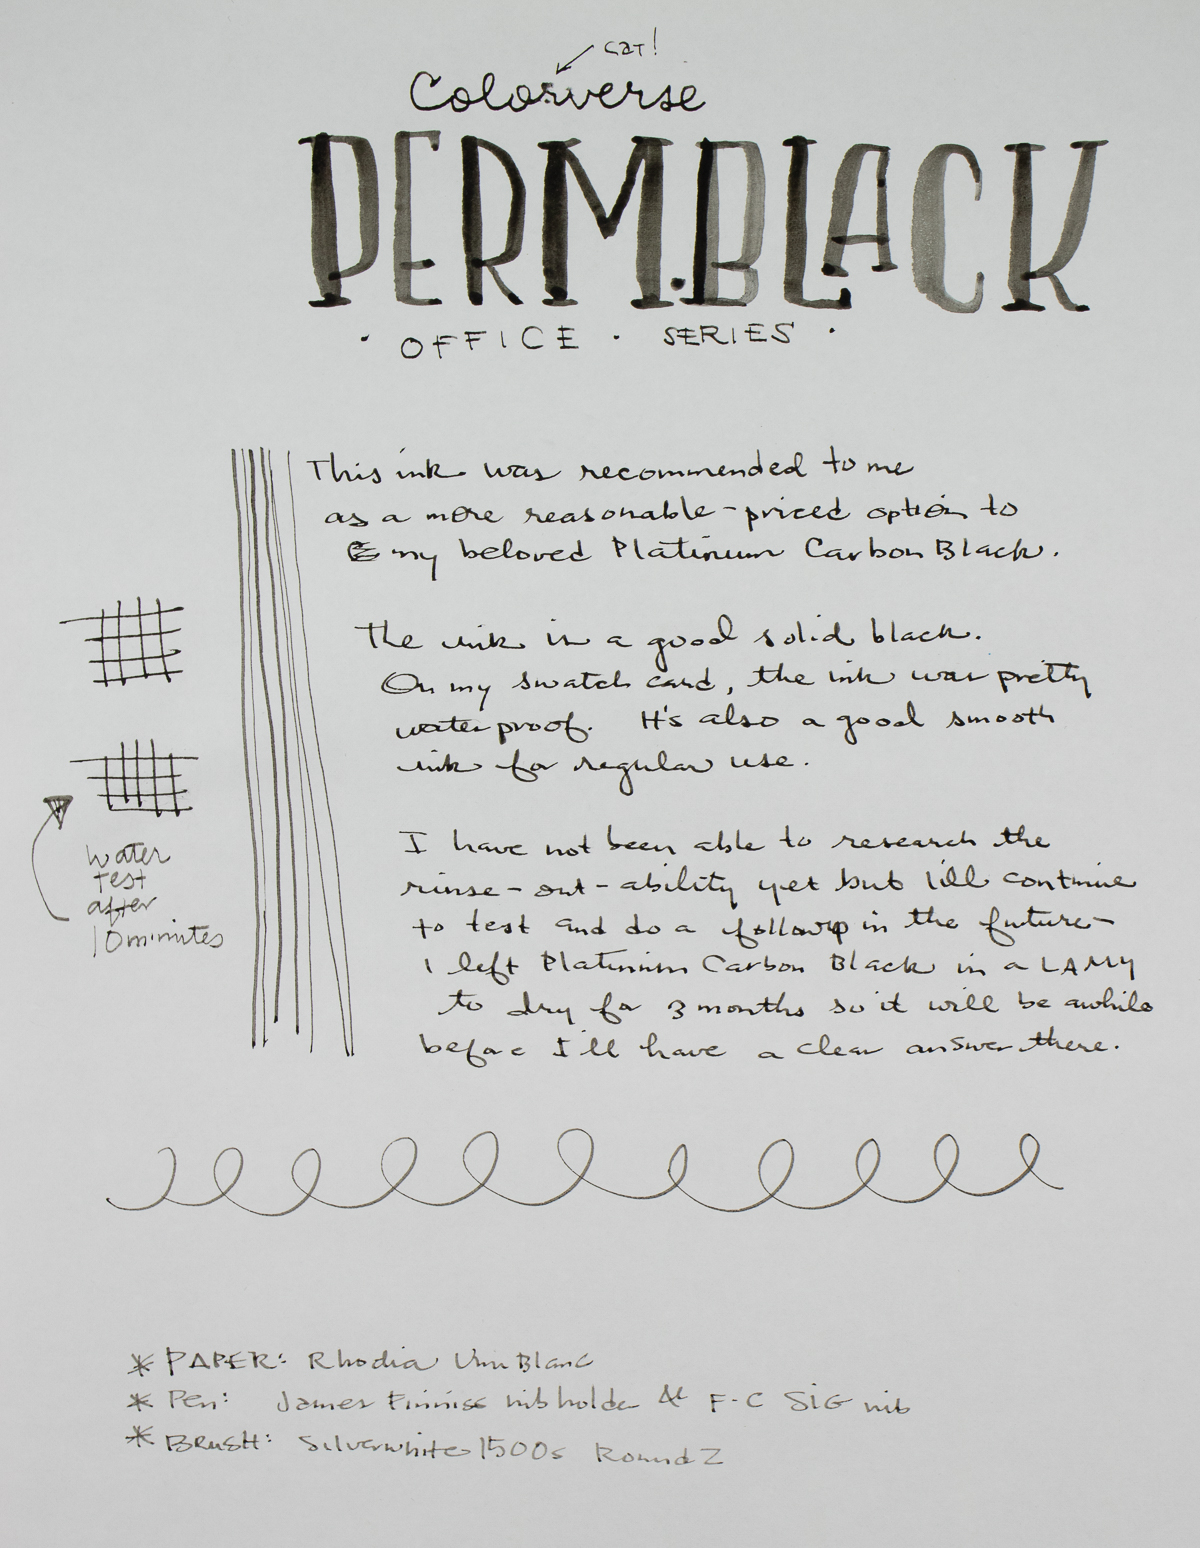 cat!
Colorverse
PERM.BLACK
· OFFICE · SERIES ·
This ink was recommended to me
as a more reasonable-priced option to
my beloved Platinum Carbon Black.
The ink is a good solid black.
On my swatch card, the ink was pretty
waterproof. It's also a good smooth
ink for regular use.
water
test
after
10 minutes
I have not been able to research the
rinse-out-ability yet but I'll continue
to test and do a followup in the future-
I left Platinum Carbon Black in a LAMY
to dry for 3 months so it will be awhile
before I'll have a clear answer there.
* PAPER: Rhodia Blanc
* Pen: James Finniss nib holder & F-C SIG nib
* BRUSH: Silverwhite 1500s Round 2